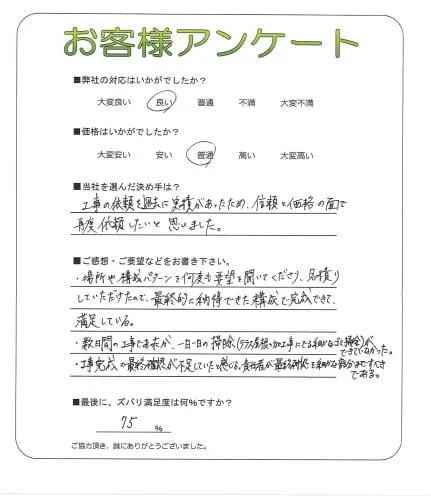 お客様アンケート
■弊社の対応はいかがでしたか?
大変良い 良い 普通 不満 大変不満
■価格はいかがでしたか?
大変安い 安い 普通 高い 大変高い
■当社を選んだ決め手は?
工事の依頼を過去に実績があったため、信頼と価格の面で
再度依頼したいと思いました。
■ご感想・ご要望などをお書き下さい。
・場所や構成パターンを何度も要望を聞いてくださり、見積り
していただけたので、最終的に納得できた構成で完成できて、
満足している。
・数日間の工事であれが、一日一日の掃除(テラス屋根の加工事にでる細かなゴミ掃除)が
できていなかった。
・工事完成の最終確認が不足していた感じる。責任者が最終確認を細かな部分まですべき
である。
■最後に、ズバリ満足度は何%ですか?
75 %
ご協力頂き、誠にありがとうございました。